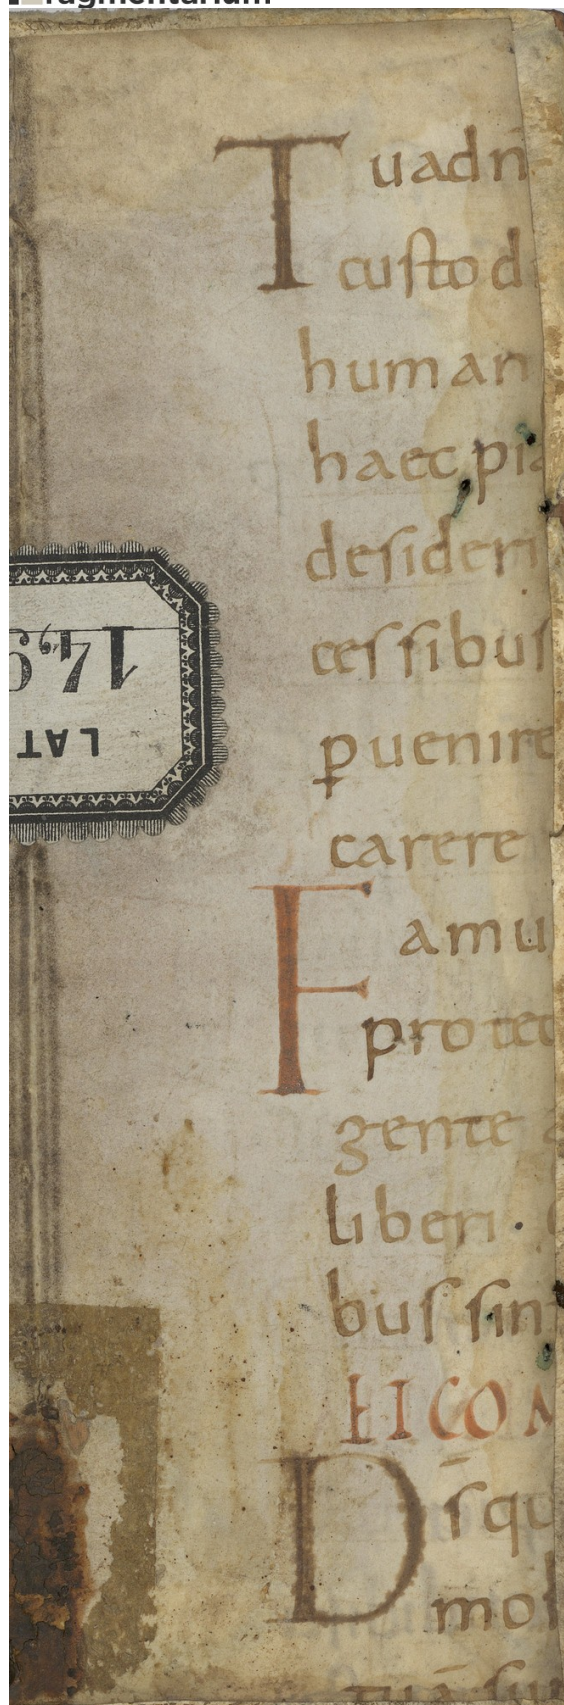 fragmentarium
Tuadn̄
custod
human
haec pia
desideri
cessibus
ꝑuenire
carere
Famu
protec
gente a
liberi ·
bus sin
HICO
D̄s qu
mos
tua su
14,9
LAT